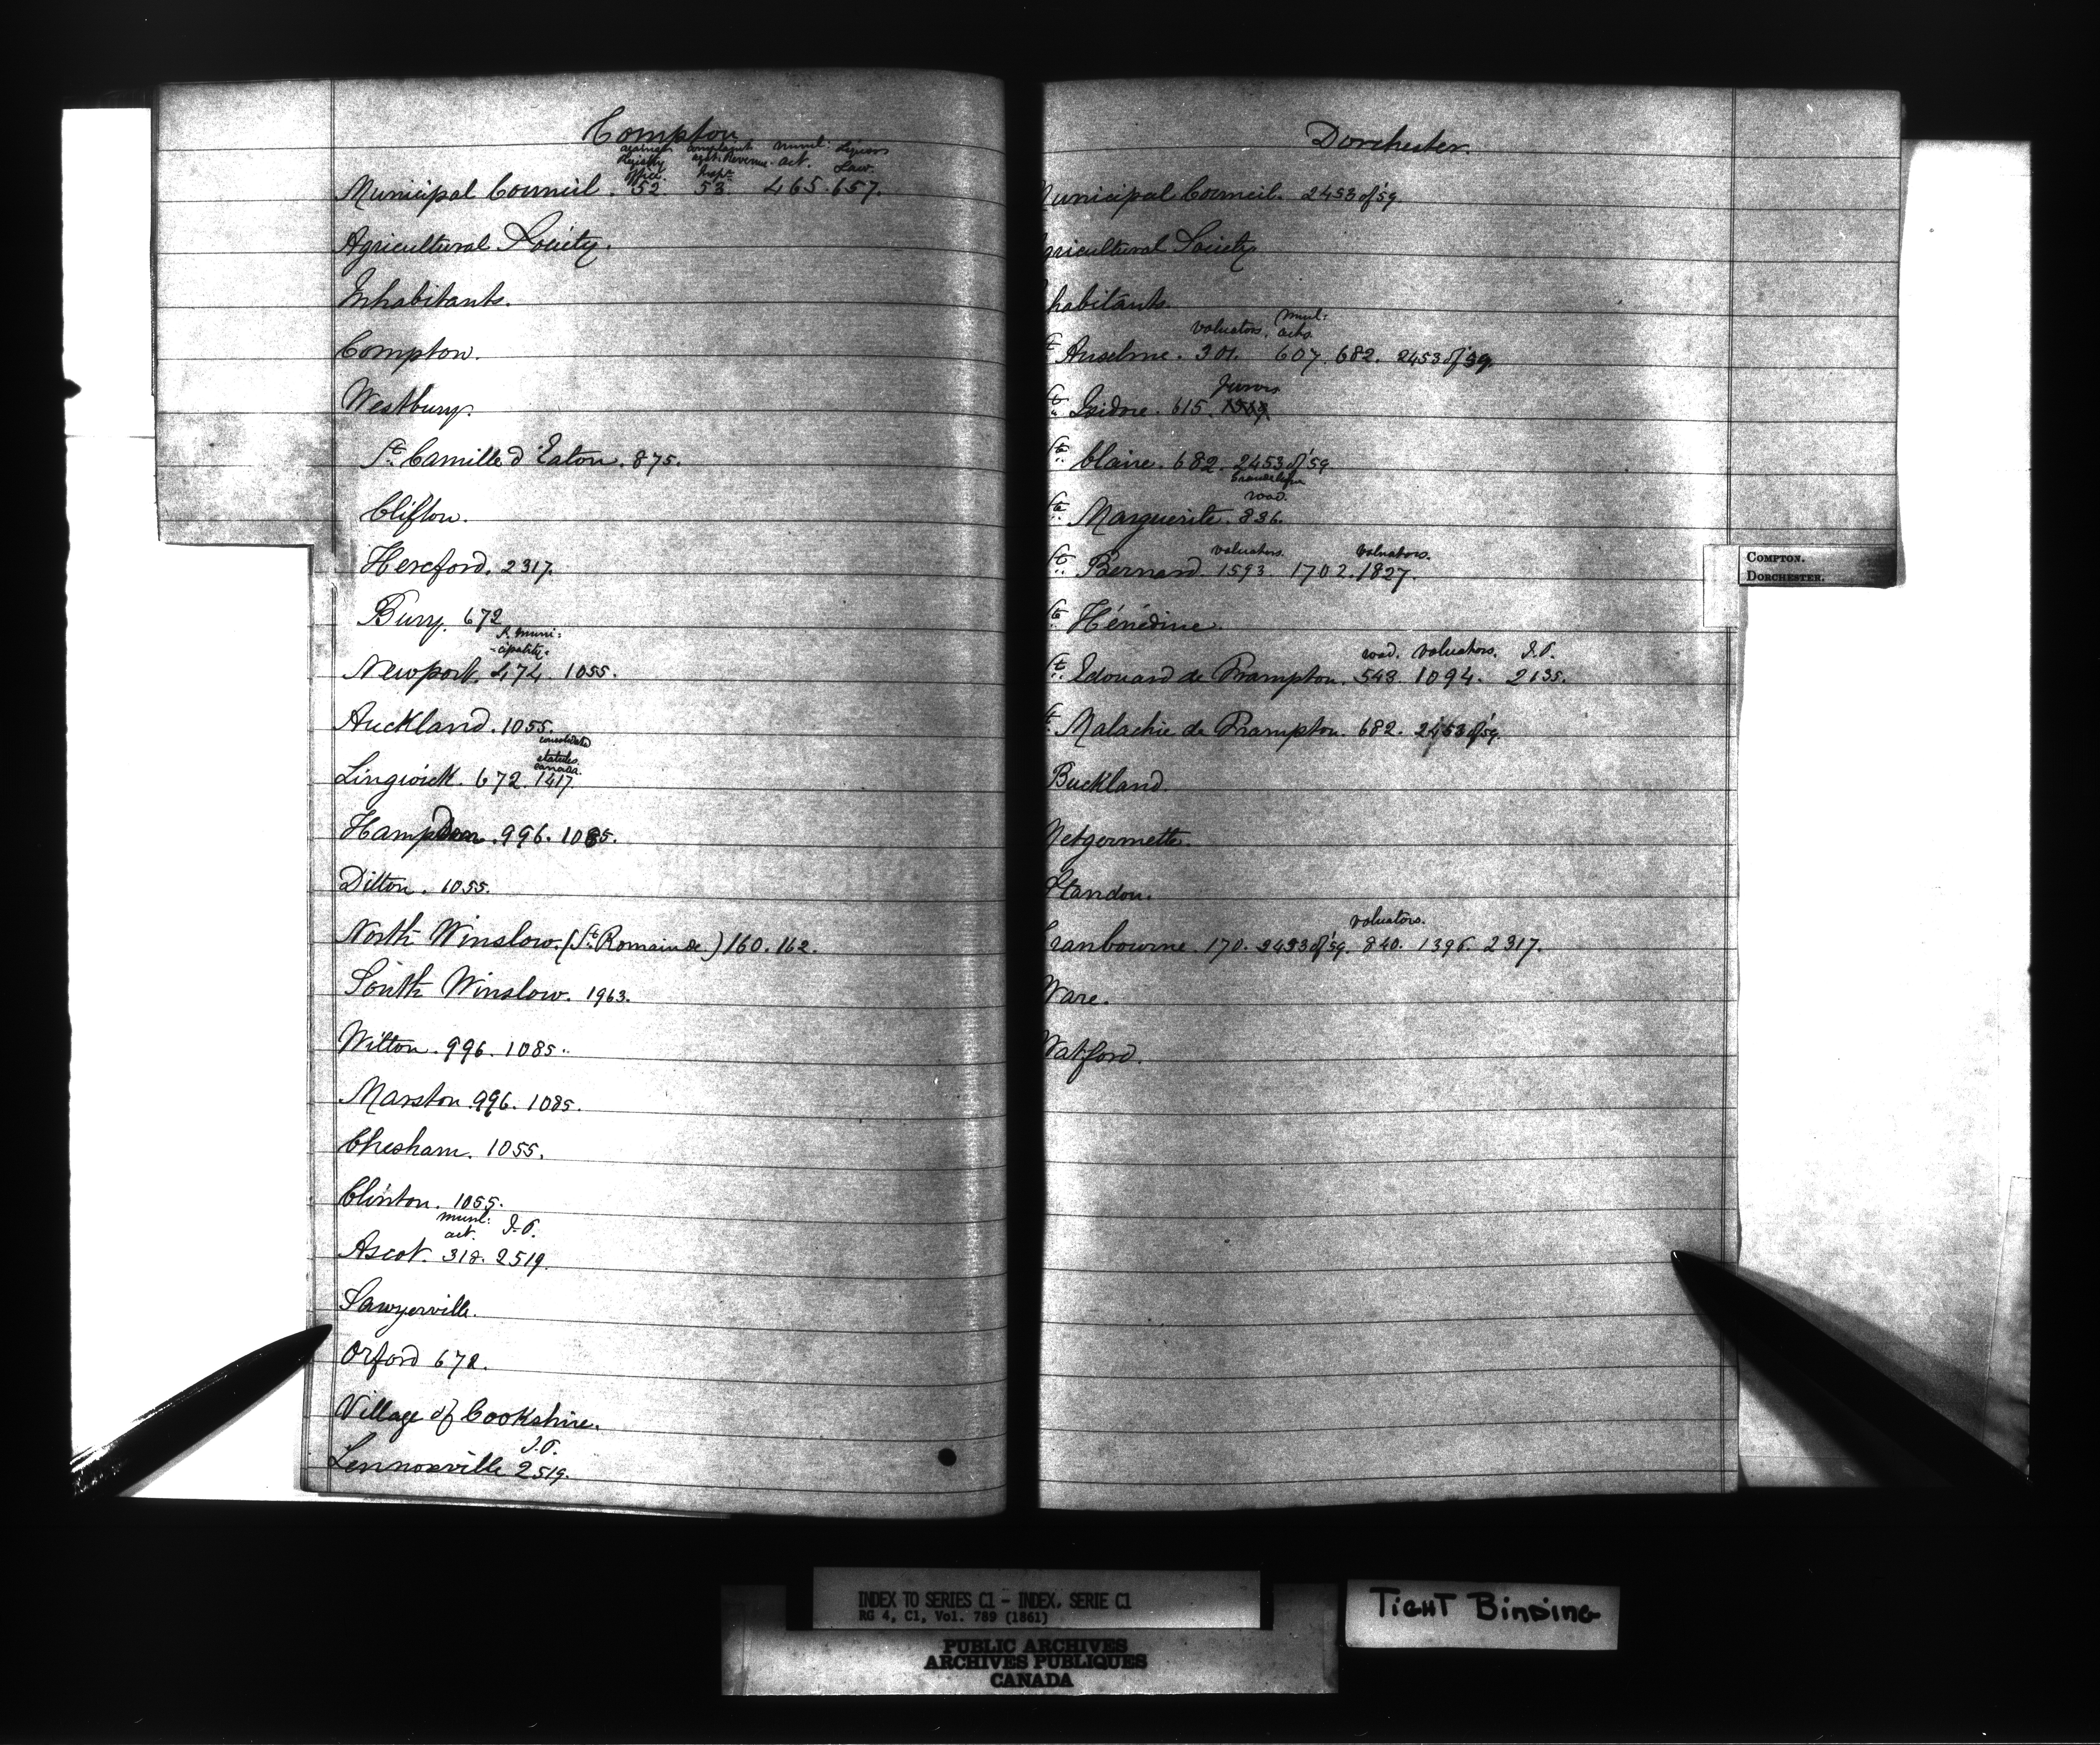 Compton
against Registry office. complaint agst. Revenue Inspr. munl: act. Liquor Law.
Municipal Council. 52 53. 465. 657.
Agricultural Society.
Inhabitants.
Compton.
Westbury.
St. Camille d'Eaton. 875.
Clifton.
Hereford. 2317.
Bury. 672
A muni:
-cipality.
Newport. 474. 1055.
Auckland. 1055.
consolidated
statutes.
Canada.
Lingwick. 672. 1417.
Hampden. 996. 1085.
Ditton. 1055.
North Winslow. (St. Romain de) 160. 162.
South Winslow. 1963.
Wilton. 996. 1085.
Marston. 996. 1085.
Chesham. 1055.
Clinton. 1055.
munl: act. J.P.
Ascot. 318. 2519.
Sawyerville.
Orford 672.
Village of Cookshire.
J.P.
Lennoxville 2519.
Dorchester.
unicipal Council. 2453 of '59.
gricultural Society
habitants.
valuators. munl: acts
t Anselme. 301. 607. 682. 2453 of '59.
Jurors.
t. Isidore. 615.
te. Claire. 682. 2453 of '59
road.
te. Marguerite. 836.
valuators. valuators.
t. Bernard. 1593. 1702. 1827.
te. Hénédine.
road. valuators. J.P.
t. Edouard de Frampton. 548. 1094. 2135.
t. Malachie de Frampton. 682. 2453 of '59.
Buckland.
Metgermette.
Standon.
valuators.
Cranbourne. 170. 2453 of '59. 840. 1396. 2317.
Ware.
Watford.
COMPTON.
DORCHESTER.
INDEX TO SERIES C1 - INDEX, SERIE C1
RG 4, C1, Vol. 789 (1861)
PUBLIC ARCHIVES
ARCHIVES PUBLIQUES
CANADA
TIGHT BINDING